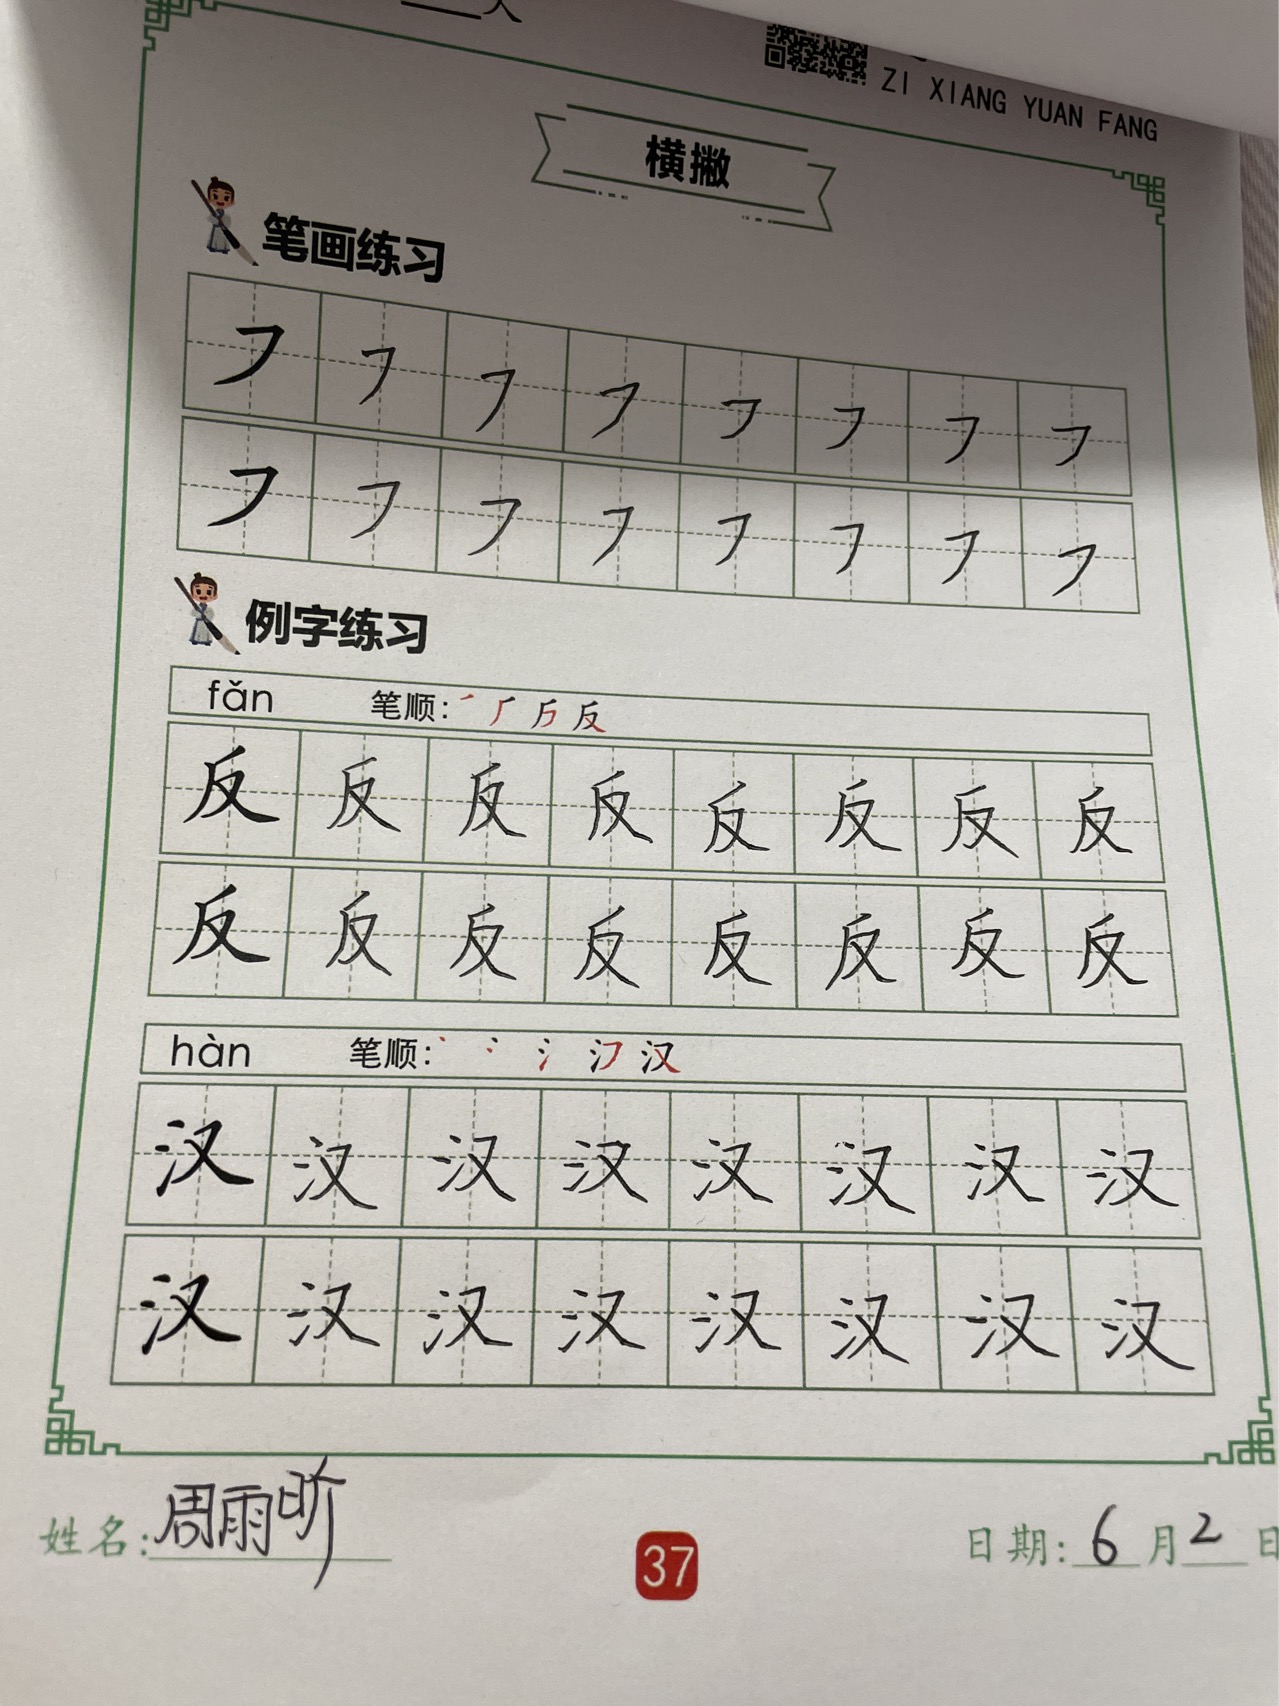 人
ZI XIANG YUAN FANG
横撇
笔画练习
㇇ ㇇ ㇇ ㇇ ㇇ ㇇ ㇇ ㇇
㇇ ㇇ ㇇ ㇇ ㇇ ㇇ ㇇ ㇇
例字练习
fǎn 笔顺: 反
反 反 反 反 反 反 反 反
反 反 反 反 反 反 反 反
hàn 笔顺: 丶 冫 氵 汉
汉 汉 汉 汉 汉 汉 汉 汉
汉 汉 汉 汉 汉 汉 汉 汉
姓名: 周雨昕 37 日期: 6 月 2 日